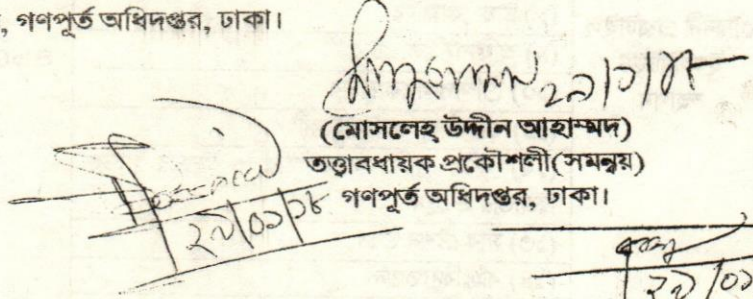 , গণপূর্ত অধিদপ্তর, ঢাকা।
২৯/১/১৮
(মোসলেহ্ উদ্দীন আহাম্মদ)
তত্ত্বাবধায়ক প্রকৌশলী(সমন্বয়)
গণপূর্ত অধিদপ্তর, ঢাকা।
২৯/০১/১৮
২৯/০১